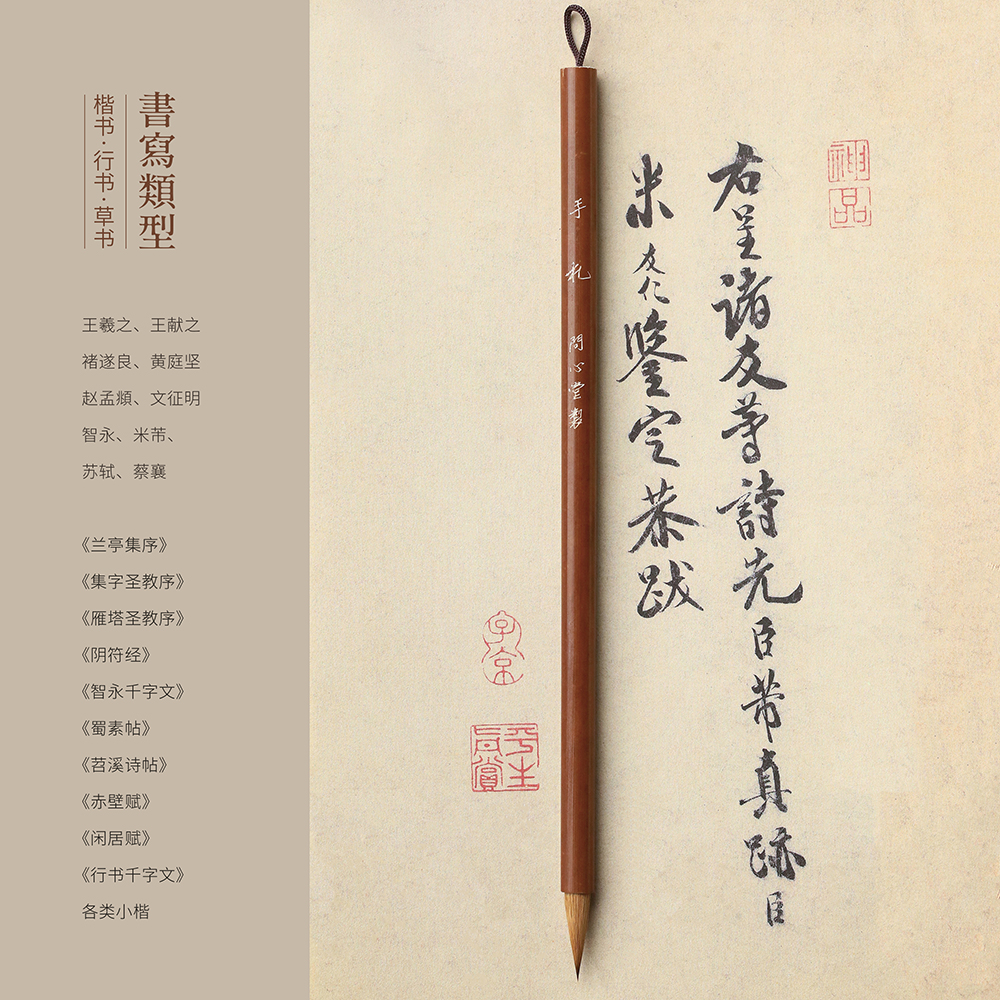 書寫類型
楷书·行书·草书
王羲之、王献之
褚遂良、黄庭坚
赵孟頫、文征明
智永、米芾、
苏轼、蔡襄
《兰亭集序》
《集字圣教序》
《雁塔圣教序》
《阴符经》
《智永千字文》
《蜀素帖》
《苕溪诗帖》
《赤壁赋》
《闲居赋》
《行书千字文》
各类小楷
手札 問心堂製
神品
右呈諸友等詩先臣芾真跡臣
米友仁鑒定恭跋
子京
平生真賞